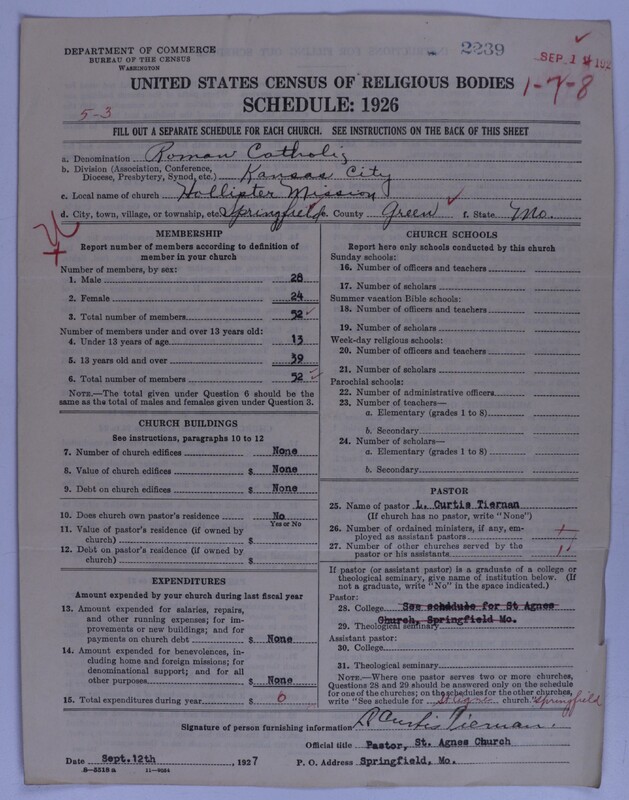 DEPARTMENT OF COMMERCE
BUREAU OF THE CENSUS
WASHINGTON
2239
SEP 14 192
1-7-8
UNITED STATES CENSUS OF RELIGIOUS BODIES
SCHEDULE: 1926
5-3
FILL OUT A SEPARATE SCHEDULE FOR EACH CHURCH. SEE INSTRUCTIONS ON THE BACK OF THIS SHEET
a. Denomination Roman Catholic
b. Division (Association, Conference, Diocese, Presbytery, Synod, etc.) Kansas City
c. Local name of church Hollister Mission
d. City, town, village, or township, etc. Springfield e. County Green f. State Mo.
MEMBERSHIP
Report number of members according to definition of
member in your church
Number of members, by sex:
1. Male 28
2. Female 24
3. Total number of members 52
Number of members under and over 13 years old:
4. Under 13 years of age 13
5. 13 years old and over 39
6. Total number of members 52
NOTE.—The total given under Question 6 should be
same as the total of males and females given under Question 3.
CHURCH BUILDINGS
See instructions, paragraphs 10 to 12
7. Number of church edifices None
8. Value of church edifices $ None
9. Debt on church edifices $ None
10. Does church own pastor's residence No
Yes or No
11. Value of pastor's residence (if owned by
church) $
12. Debt on pastor's residence (if owned by
church) $
EXPENDITURES
Amount expended by your church during last fiscal year
13. Amount expended for salaries, repairs,
and other running expenses; for im-
provements or new buildings; and for
payments on church debt $ None
14. Amount expended for benevolences, in-
cluding home and foreign missions; for
denominational support; and for all
other purposes $ None
15. Total expenditures during year $ 0
CHURCH SCHOOLS
Report here only schools conducted by this church
Sunday schools:
16. Number of officers and teachers
17. Number of scholars
Summer vacation Bible schools:
18. Number of officers and teachers
19. Number of scholars
Week-day religious schools:
20. Number of officers and teachers
21. Number of scholars
Parochial schools:
22. Number of administrative officers
23. Number of teachers—
a. Elementary (grades 1 to 8)
b. Secondary
24. Number of scholars—
a. Elementary (grades 1 to 8)
b. Secondary
PASTOR
25. Name of pastor L. Curtis Tiernan
(If church has no pastor, write "None")
26. Number of ordained ministers, if any, em-
ployed as assistant pastors
27. Number of other churches served by the
pastor or his assistants
If pastor (or assistant pastor) is a graduate of a college or
theological seminary, give name of institution below. (If
not a graduate, write "No" in the space indicated.)
Pastor:
28. College See schedule for St Agnes
29. Theological seminary Church, Springfield Mo.
Assistant pastor:
30. College
31. Theological seminary
NOTE.—Where one pastor serves two or more churches,
Questions 28 and 29 should be answered only on the schedule
for one of the churches; on the schedules for the other churches,
write "See schedule for St Agnes church." Springfield
Signature of person furnishing information L Curtis Tiernan.
Official title Pastor, St. Agnes Church
Date Sept. 12th, 1927 P. O. Address Springfield, Mo.
8-5318a 11-9024